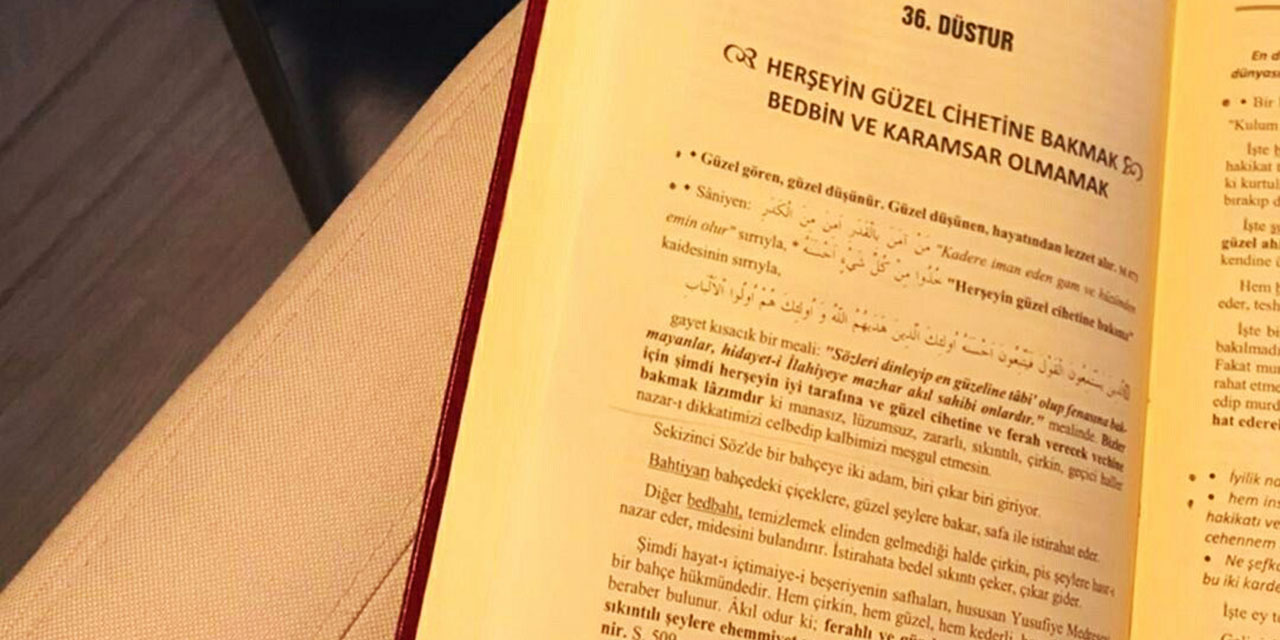 36. DÜSTUR
HERŞEYİN GÜZEL CİHETİNE BAKMAK
BEDBİN VE KARAMSAR OLMAMAK
• Güzel gören, güzel düşünür. Güzel düşünen, hayatından lezzet alır.
• Sâniyen: مَنْ اٰمَنَ بِالْقَدَرِ اَمِنَ مِنَ الْكَدَرِ "Kadere iman eden gam ve hüzünden
emin olur" sırrıyla, خُذُوا مِنْ كُلِّ شَيْءٍ اَحْسَنَهُ "Herşeyin güzel cihetine bakınız"
kaidesinin sırrıyla,
اَلَّذِينَ يَسْتَمِعُونَ الْقَوْلَ فَيَتَّبِعُونَ اَحْسَنَهُ اُولٰئِكَ الَّذِينَ هَدٰيهُمُ اللّٰهُ وَ اُولٰئِكَ هُمْ اُولُوا اْلاَلْبَابِ
gayet kısacık bir meali: "Sözleri dinleyip en güzeline tâbi' olup fenasına bak-
mayanlar, hidayet-i İlahiyeye mazhar akıl sahibi onlardır." mealinde. Bizler
için şimdi herşeyin iyi tarafına ve güzel cihetine ve ferah verecek vechine
bakmak lâzımdır ki manasız, lüzumsuz, zararlı, sıkıntılı, çirkin, geçici haller
nazar-ı dikkatimizi celbedip kalbimizi meşgul etmesin.
Sekizinci Söz'de bir bahçeye iki adam, biri çıkar biri giriyor.
Bahtiyarı bahçedeki çiçeklere, güzel şeylere bakar, safa ile istirahat eder.
Diğer bedbaht, temizlemek elinden gelmediği halde çirkin, pis şeylere hasr-ı
nazar eder, midesini bulandırır. İstirahata bedel sıkıntı çeker, çıkar gider.
Şimdi hayat-ı içtimaiye-i beşeriyenin safhaları, hususan Yusufiye
bir bahçe hükmündedir. Hem çirkin, hem güzel, hem kederli,
beraber bulunur. Âkıl odur ki; ferahlı ve
sıkıntılı şeylere
nir. S. 509
En
• Bir
"Kulum
İşte
hakikat
ki
bırakıp
İşte
güzel
kendine
Hem
eder,
İşte
Fakat
rahat
edip
• İyilik
• hem
hakikatı
cehennem
• Ne
bu iki
İşte ey